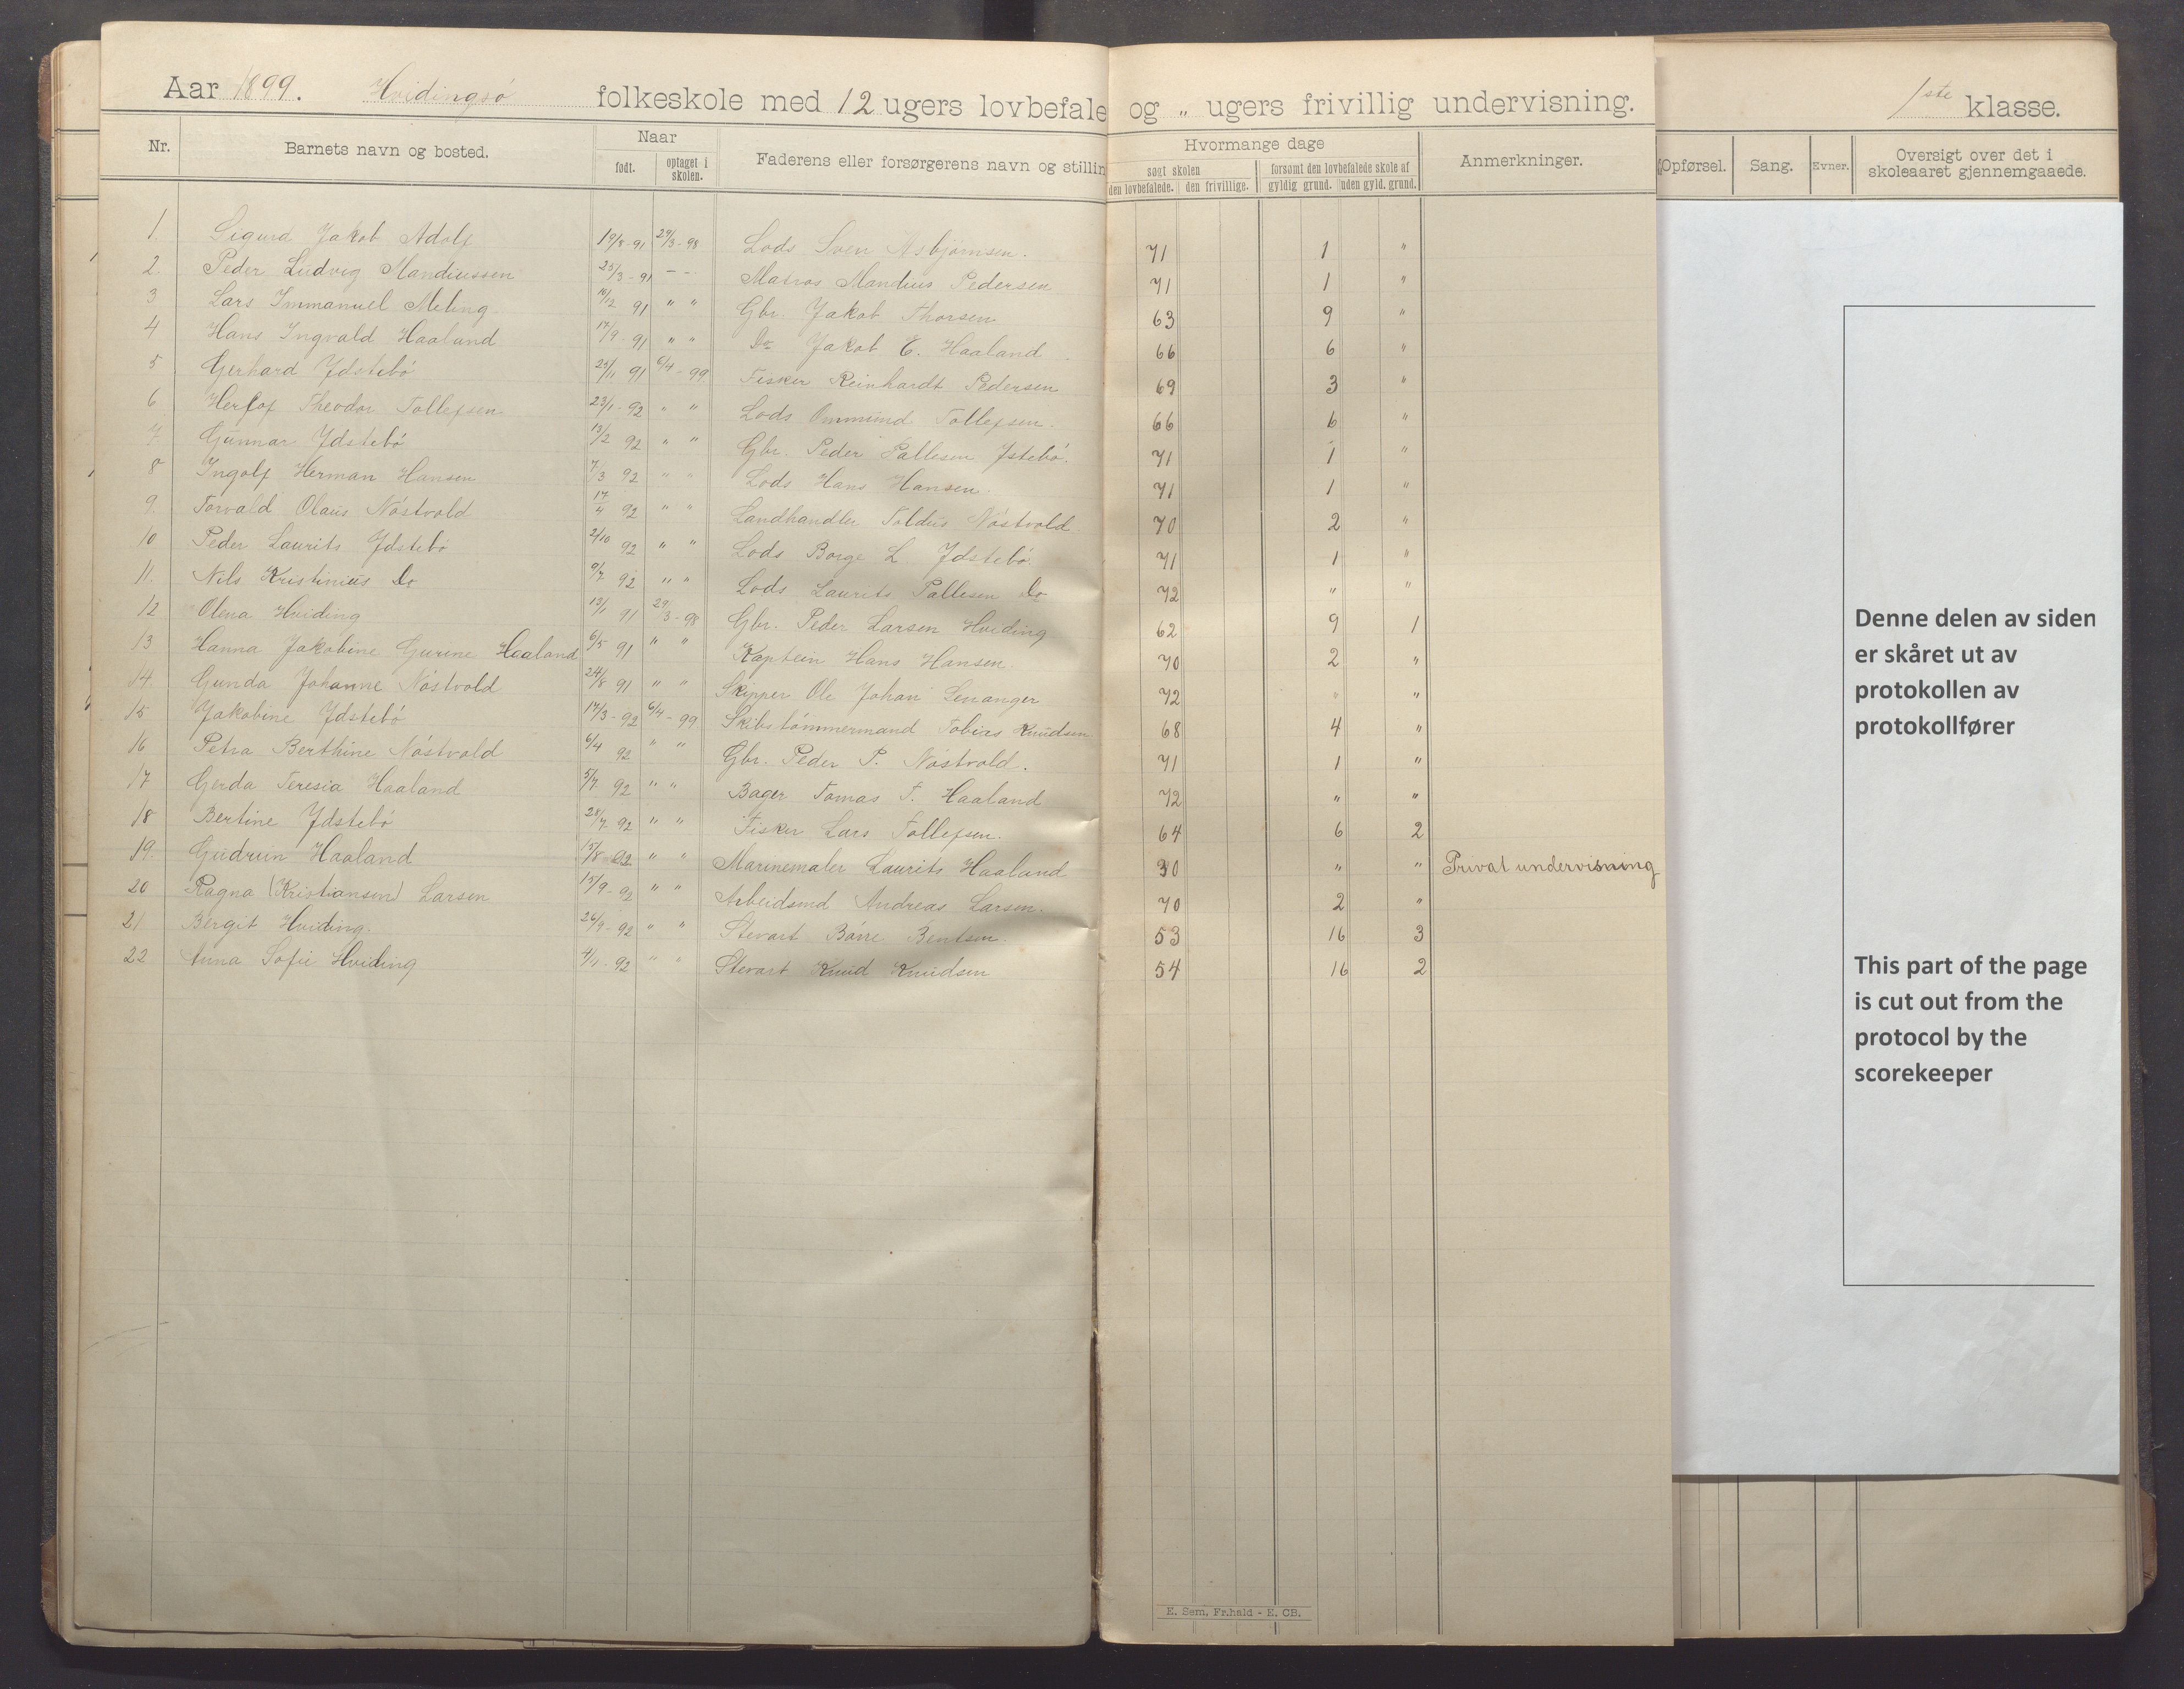 Aar 1899. Hvidingsö folkeskole med 12 ugers lovbefale og „ ugers frivillig undervisning. 1ste klasse.
Nr. Barnets navn og bosted. Naar født. optaget i skolen. Faderens eller forsørgerens navn og stillin Hvormange dage søgt skolen den lovbefalede. den frivillige. forsømt den lovbefalede skole af gyldig grund. uden gyld. grund. Anmerkninger. Opførsel. Sang. Evner. Oversigt over det i skoleaaret gjennemgaaede.
1. Sigurd Jakob Adolf 19/8-91 29/3-98 Lods Sven Asbjörnsen. 71 1 "
2. Peder Ludvig Mandiussen 25/3-91 - - Matros Mandius Pedersen 71 1 "
3 Lars Immanuel Meling 16/12 91 " " Gbr. Jakob Thorsen 63 9 "
4 Hans Ingvald Haaland 17/9-91 " " Do Jakob E. Haaland 66 6 "
5 Gerhard Ydstebö 25/11 91 6/4-99 Fisker Reinhardt Pedersen 69 3 "
6 Herlof Theodor Tollefsen 23/1-92 " " Lods Ommund Tollefsen. 66 6 "
7. Gunnar Ydstebö 13/2 92 " " Gbr. Peder Pallesen Ystebö. 71 1 "
8 Ingolf Herman Hansen 7/3 92 " " Lods Hans Hansen 71 1 "
9. Torvald Olaus Nöstvold 17/4 92 " " Landhandler Toldus Nöstvold. 70 2 "
10 Peder Laurits Ydstebö 2/10 92 " " Lods Borge L. Ydstebö 71 1 "
11. Nils Kristinius Do 9/7 92 " " Lods Laurits Pallesen Do 72 " "
12 Olena Hviding 13/1 91 29/3-98 Gbr. Peder Larsen Hviding 62 9 1
13. Hanna Jakobine Gurine Haaland 6/5 91 " " Kaptein Hans Hansen. 70 2 "
14. Gunda Johanne Nöstvold 24/8 91 " " Skipper Ole Johan Lenanger 72 " "
15 Jakobine Ydstebö 17/3-92 6/4-99 Skibstömmermand Tobias Knudsen 68 4 "
16 Petra Berthine Nöstvold 6/4 92 " " Gbr. Peder P. Nöstvold. 71 1 "
17 Gerda Teresia Haaland 5/7 92 " " Bager Tomas T. Haaland 72 " "
18 Bertine Ydstebö 28/7 92 " " Fisker Lars Tollefsen. 64 6 2
19. Gudrun Haaland 15/8 92 " " Marinemaler Laurits Haaland 30 " " Privat undervisning
20 Ragna (Kristiansen) Larsen 15/9-92 " " Arbeidsmd Andreas Larsen. 70 2 "
21 Bergit Hviding. 26/9-92 " " Stevart Böire Bentsen. 53 16 3
22 Anna Sofie Hviding 4/11-92 " " Stevart Knud Knudsen 54 16 2
Denne delen av siden
er skåret ut av
protokollen av
protokollfører
This part of the page
is cut out from the
protocol by the
scorekeeper
E. Sem, Fr.hald - E. CB.